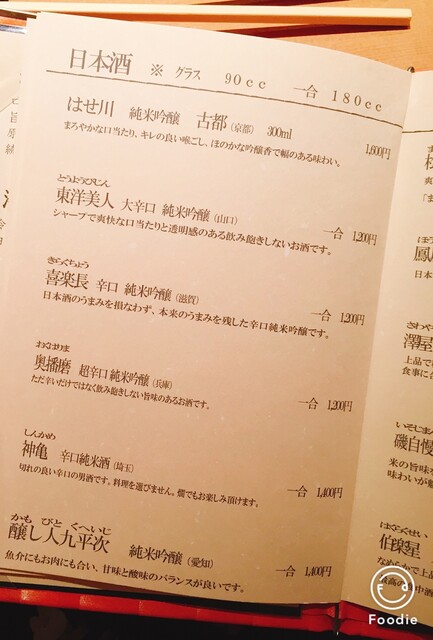 日本酒 ※ グラス 90cc 一合 180cc
はせ川 純米吟醸 古都(京都) 300ml 1,600円
まろやかな口当たり、キレの良い喉ごし、ほのかな吟醸香で幅のある味わい。
とうようびじん
東洋美人 大辛口 純米吟醸(山口) 一合 1,200円
シャープで爽快な口当たりと透明感のある飲み飽きしないお酒です。
きらくちょう
喜楽長 辛口 純米吟醸(滋賀) 一合 1,200円
日本酒のうまみを損なわず、本来のうまみを残した辛口純米吟醸です。
おくはりま
奥播磨 超辛口 純米吟醸(兵庫) 一合 1,200円
ただ辛いだけではなく飲み飽きしない旨味のあるお酒です。
しんかめ
神亀 辛口純米酒(埼玉) 一合 1,400円
切れの良い辛口の男酒です。料理を選びません。燗でもお楽しみ頂けます。
かも びと くへいじ
醸し人九平次 純米吟醸(愛知) 一合 1,400円
魚介にもお肉にも合い、甘味と酸味のバランスが良いです。
鳳
さわや
澤屋
上品で
食事に
いそじまん
磯自慢
米の旨味を
味わいが
はくらくせい
伯楽星
なめらかで上品
最高の食中酒
Foodie